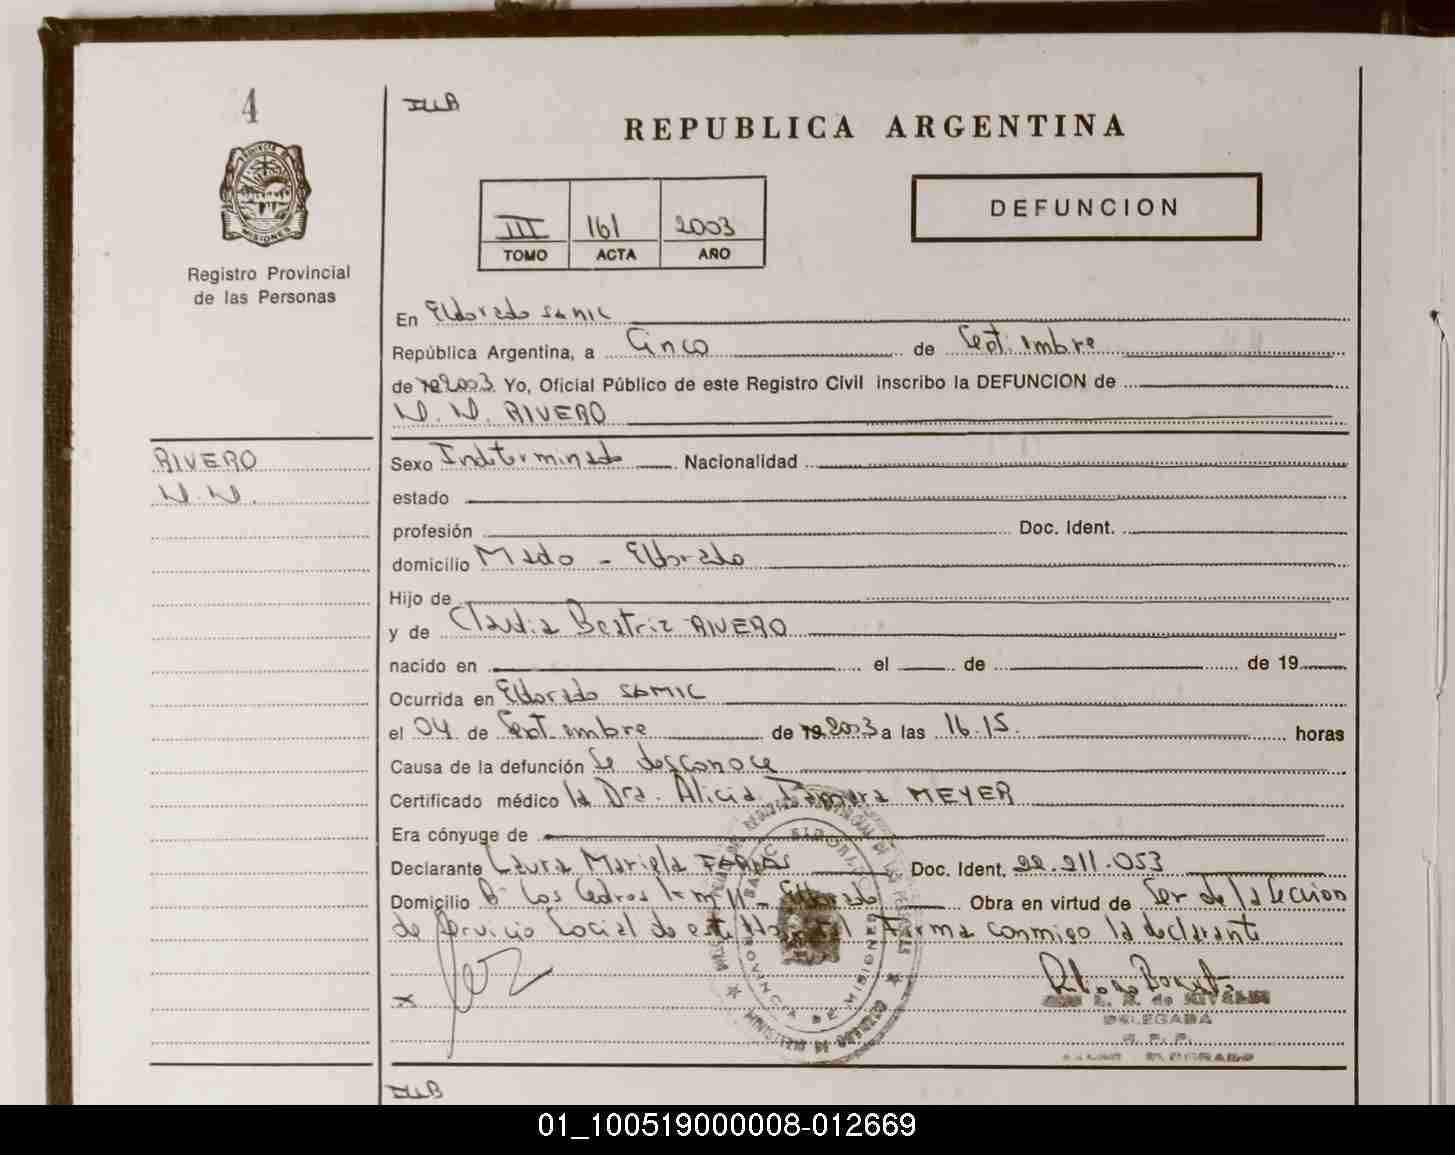 4
REPUBLICA ARGENTINA
PROVINCIA
MISIONES
Registro Provincial
de las Personas
III 161 2003
TOMO ACTA AÑO
DEFUNCION
En Eldorado SAMIC
República Argentina, a Cinco de Septiembre
de 19 2003 Yo, Oficial Público de este Registro Civil inscribo la DEFUNCION de
N.N. RIVERO
RIVERO
N.N.
Sexo Indeterminado Nacionalidad
estado
profesión Doc. Ident.
domicilio Mado - Eldorado
Hijo de
y de Claudia Beatriz RIVERO
nacido en el de de 19
Ocurrida en Eldorado SAMIC
el 04 de Septiembre de 19 2003 a las 16.15. horas
Causa de la defunción Se desconoce
Certificado médico la Dra. Alicia MEYER
Era cónyuge de
Declarante Laura Mariela FARIAS Doc. Ident. 22.211.053
Domicilio Bº Los Cedros km 11 - Eldorado Obra en virtud de Ser de la Sección
de Servicio Social de este Hospital Firma conmigo la declarante
x
PROVINCIA DE MISIONES
MINISTERIO DE GOBIERNO
DELEGADA
01_100519000008-012669